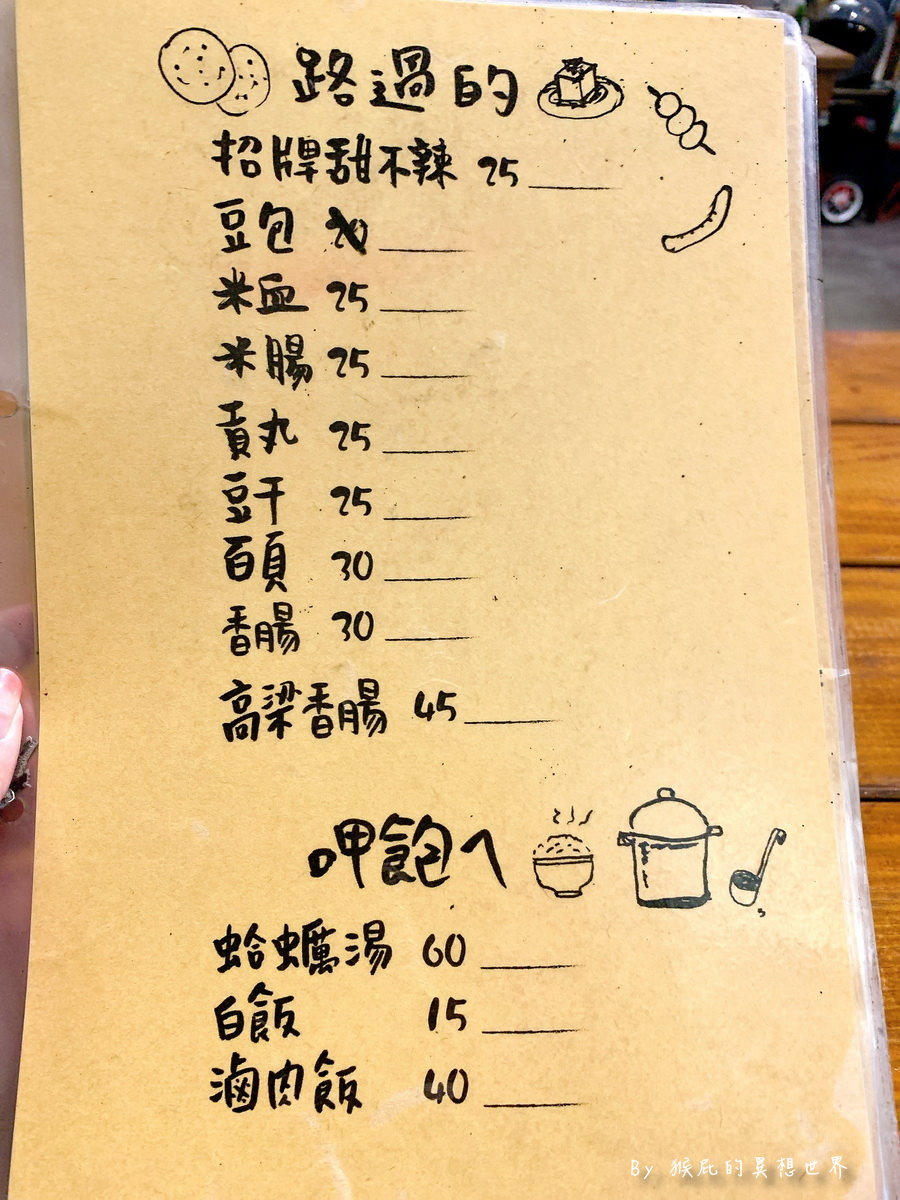 路過的
招牌甜不辣 25
豆包 20
米血 25
米腸 25
貢丸 25
豆干 25
百頁 30
香腸 30
高梁香腸 45
呷飽ㄟ
蛤蠣湯 60
白飯 15
滷肉飯 40
By 猴屁的異想世界